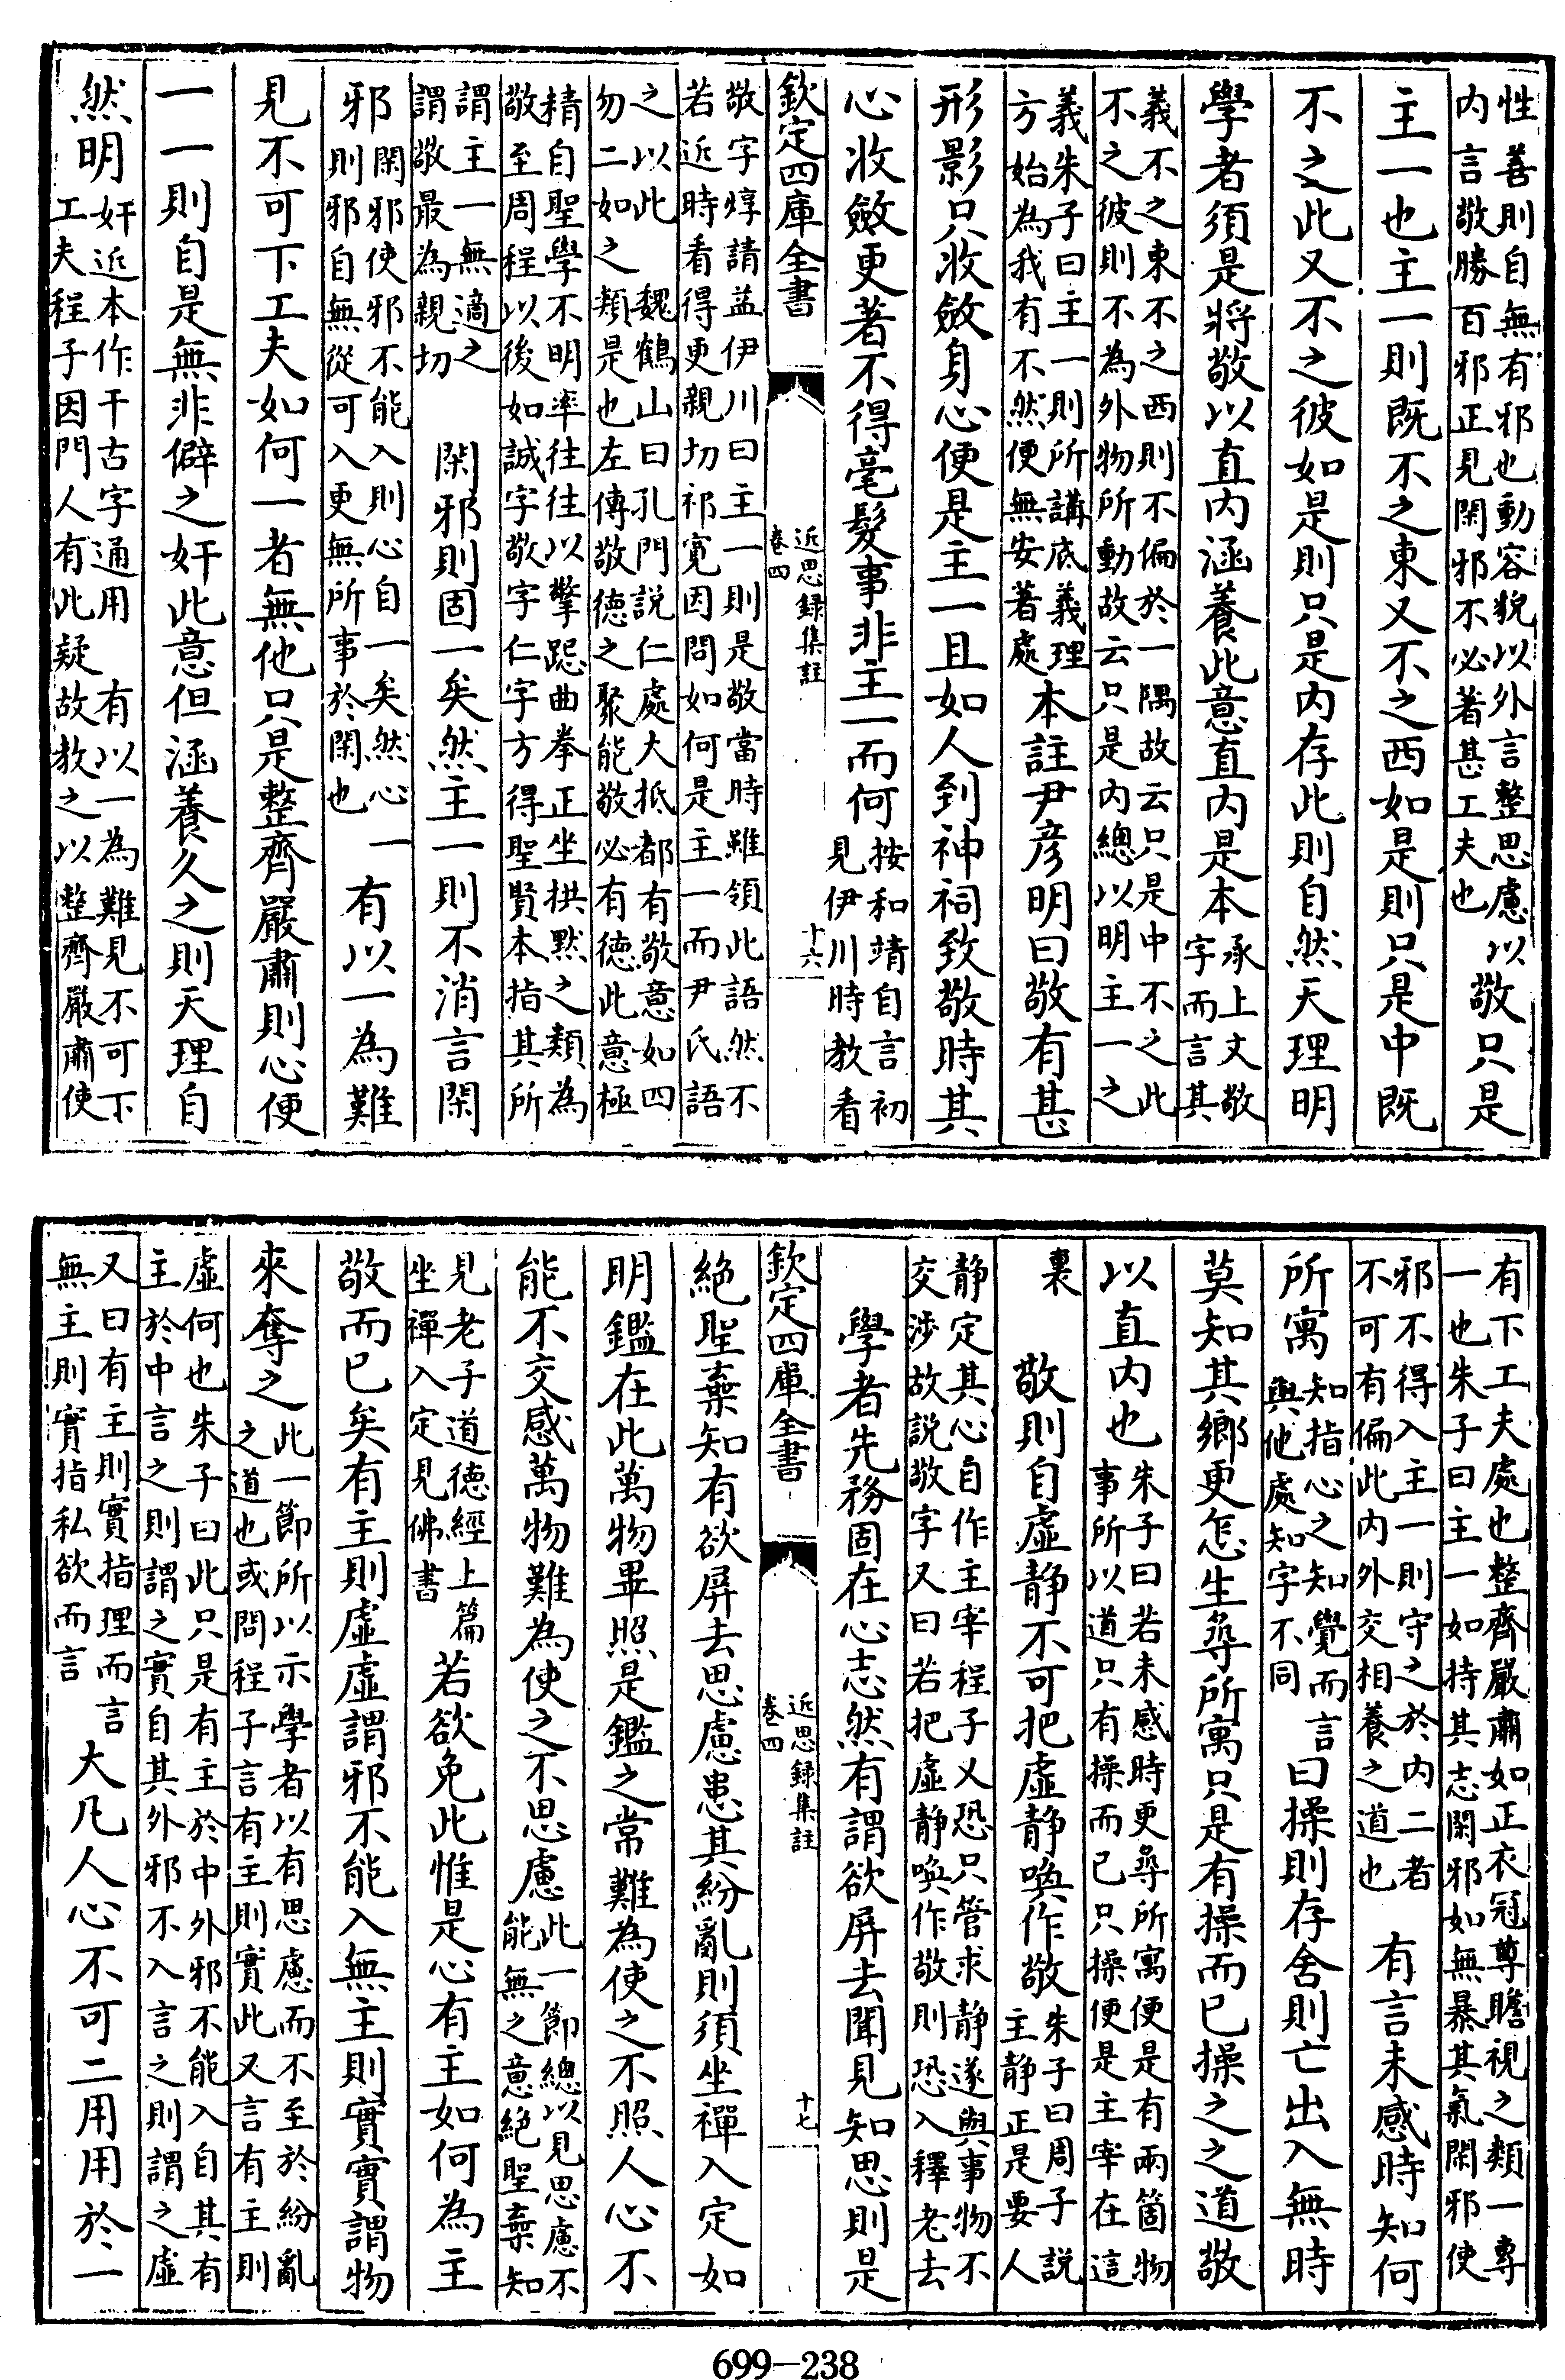 性善則自無有邪也動容貌以外言整思慮以
内言敬勝百邪正見閑邪不必著甚工夫也
敬只是
主一也主一則既不之東又不之西如是則只是中既
不之此又不之彼如是則只是内存此則自然天理明
學者須是將敬以直内涵養此意直内是本
承上文敬
字而言其
義不之東不之西則不偏於一隅故云只是中不之此
不之彼則不為外物所動故云只是内總以明主一之
義朱子曰主一則所講底義理
方始為我有不然便無安著處
本註尹彦明曰敬有甚
形影只收斂身心便是主一且如人到神祠致敬時其
心收斂更著不得毫髮事非主一而何
按和靖自言初
見伊川時教看
欽定四庫全書
近思録集註
卷四
十六
敬字焞請益伊川曰主一則是敬當時雖領此語然不
若近時看得更親切祁寛因問如何是主一而尹氏語
之以此 魏鶴山曰孔門説仁處大抵都有敬意如四
勿二如之類是也左傳敬德之聚能敬必有德此意極
精自聖學不明率往往以擎跽曲拳正坐拱默之類為
敬至周程以後如誠字敬字仁字方得聖賢本指其所
謂主一無適之
謂敬最為親切
閑邪則固一矣然主一則不消言閑
邪
閑邪使邪不能入則心自一矣然心一
則邪自無從可入更無所事於閑也
有以一為難
見不可下工夫如何一者無他只是整齊嚴肅則心便
一一則自是無非僻之奸此意但涵養久之則天理自
然明
奸近本作干古字通用 有以一為難見不可下
工夫程子因門人有此疑故教之以整齊嚴肅使
有下工夫處也整齊嚴肅如正衣冠尊瞻視之類一專
一也朱子曰主一如持其志閑邪如無暴其氣閑邪使
邪不得入主一則守之於内二者
不可有偏此内外交相養之道也
有言未感時知何
所寓
知指心之知覺而言
與他處知字不同
曰操則存舍則亡出入無時
莫知其鄉更怎生尋所寓只是有操而已操之之道敬
以直内也
朱子曰若未感時更尋所寓便是有兩箇物
事所以道只有操而已只操便是主宰在這
裏
敬則自虚静不可把虚静喚作敬
朱子曰周子説
主静正是要人
静定其心自作主宰程子又恐只管求静遂與事物不
交渉故説敬字又曰若把虚静喚作敬則恐入釋老去
學者先務固在心志然有謂欲屏去聞見知思則是
欽定四庫全書
近思録集註
卷四
十七
絶聖棄知有欲屏去思慮患其紛亂則須坐禪入定如
明鑑在此萬物畢照是鑑之常難為使之不照人心不
能不交感萬物難為使之不思慮
此一節總以見思慮不
能無之意絶聖棄知
見老子道德經上篇
坐禪入定見佛書
若欲免此惟是心有主如何為主
敬而已矣有主則虚虚謂邪不能入無主則實實謂物
來奪之
此一節所以示學者以有思慮而不至於紛亂
之道也或問程子言有主則實此又言有主則
虚何也朱子曰此只是有主於中外邪不能入自其有
主於中言之則謂之實自其外邪不入言之則謂之虚
又曰有主則實指理而言
無主則實指私欲而言
大凡人心不可二用用於一
699—238